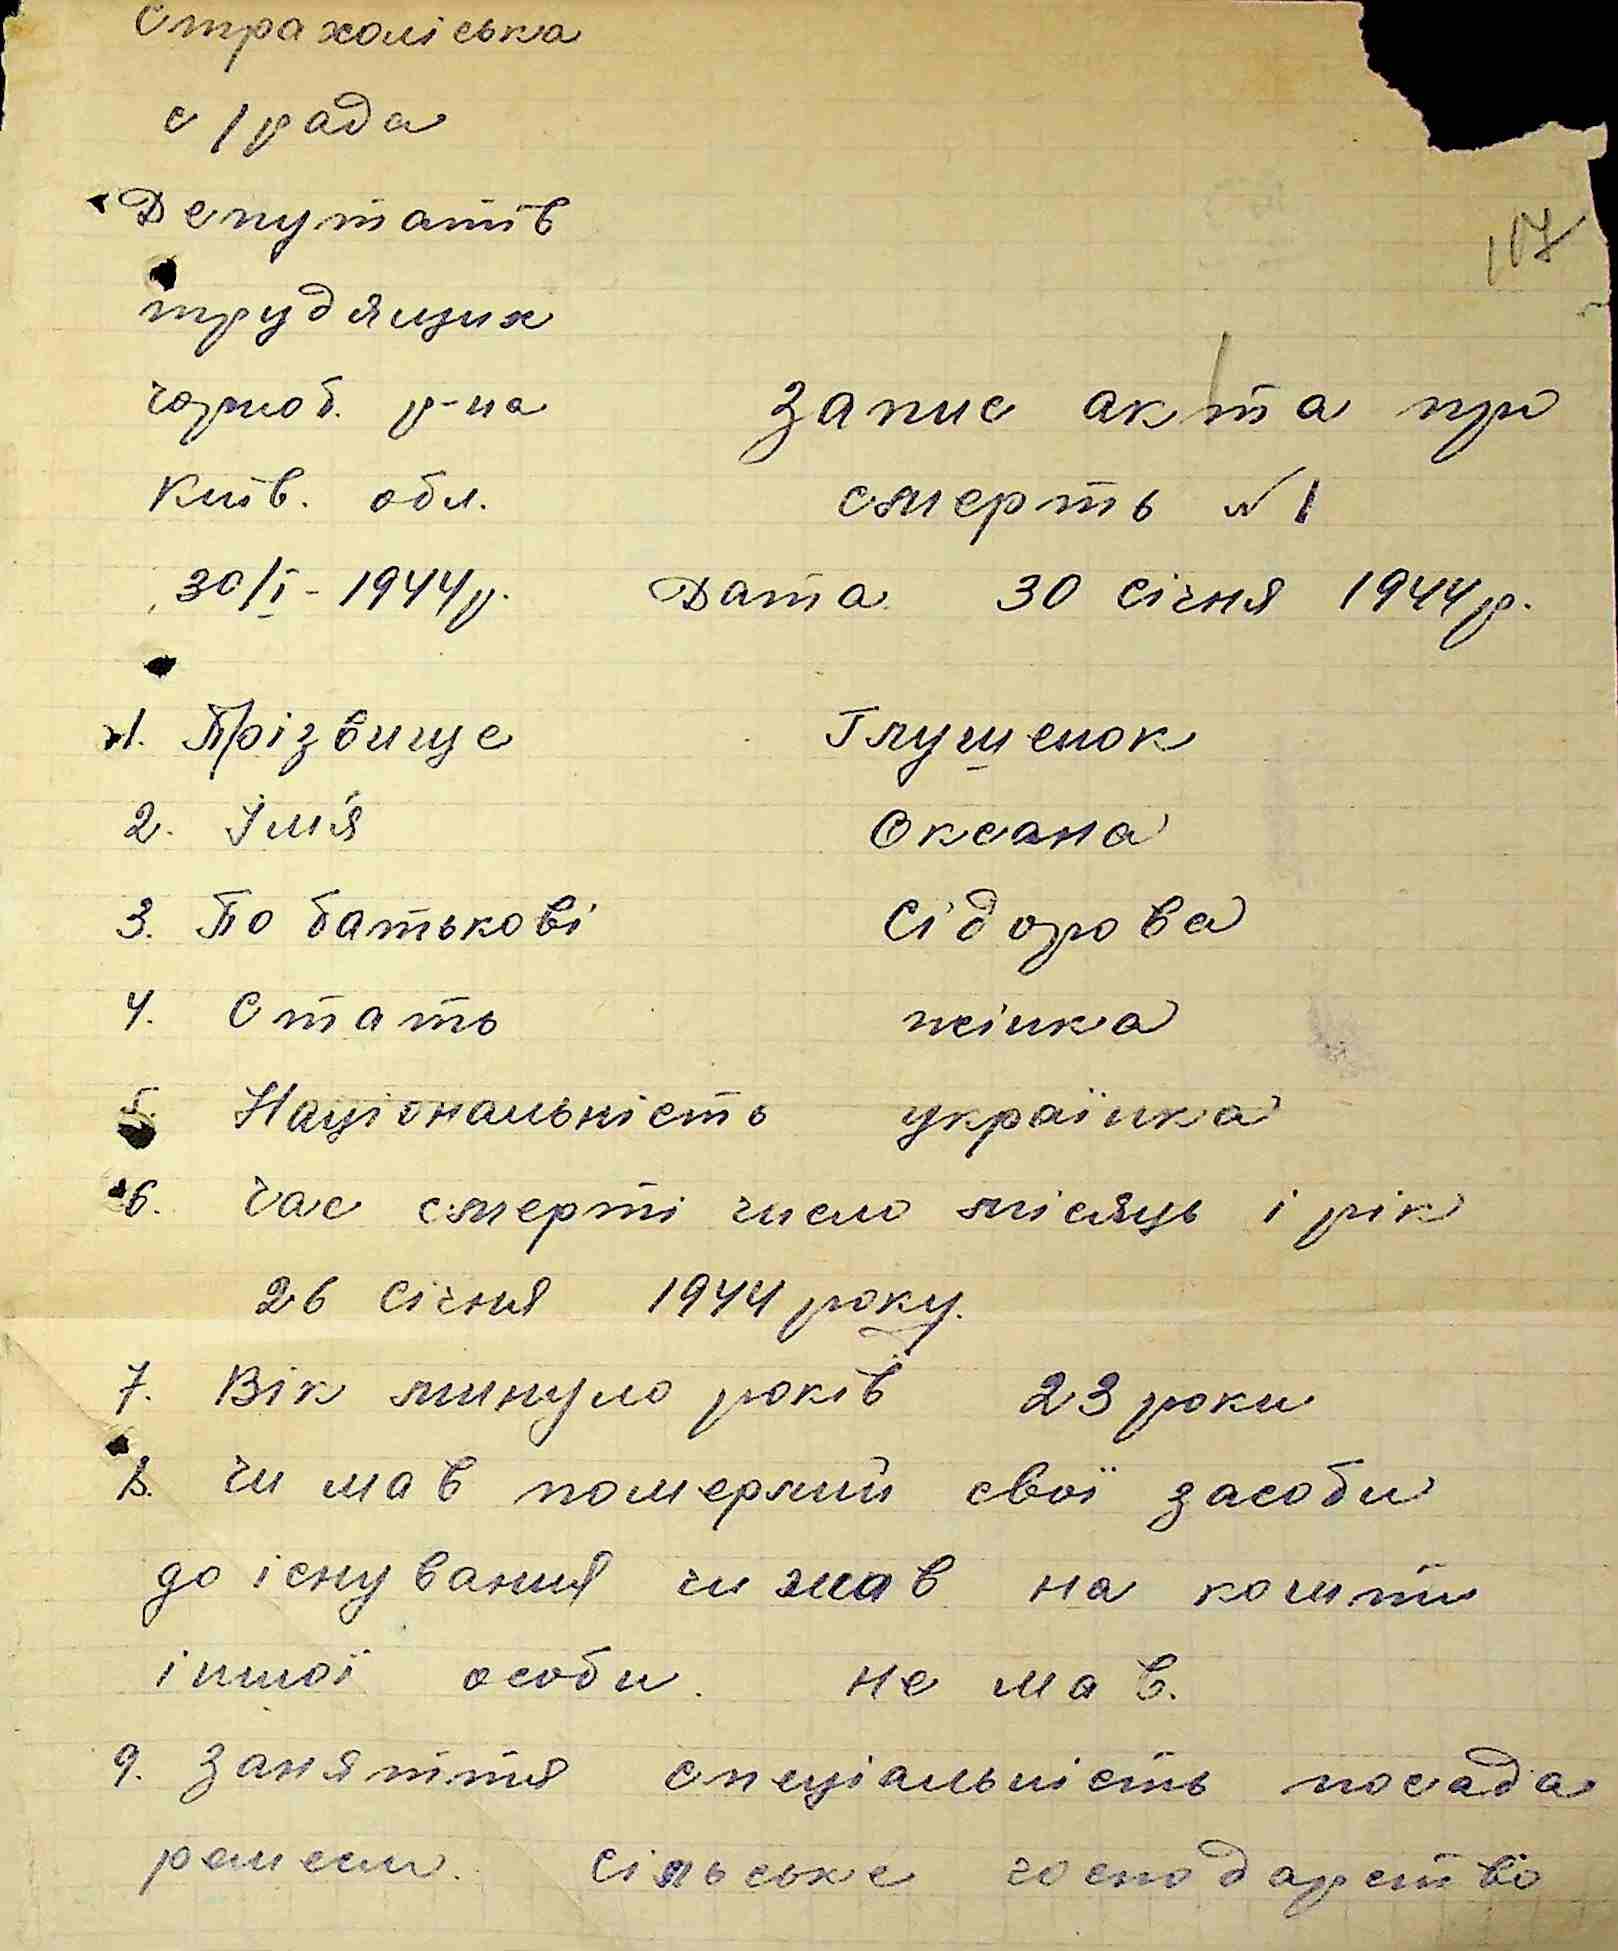 Страхоліська
с/рада
Депутатів
трудящих
чорноб. р-на
Київ. обл.
30/I - 1944р.
117
Запис акта про
смерть № 1
Дата 30 Січня 1944р.
1. Прізвище Глущенок
2. Імʼя Оксана
3. По батькові Сідорова
4. Стать жінка
5. Національність українка
6. Час смерті число місяць і рік
26 Січня 1944 року.
7. Вік минуло років 23 роки
8. Чи мав померлий свої засоби
до існування чи жив на кошти
іншої особи. не мав.
9. Заняття спеціальність посада
ремесло. Сільське господарство